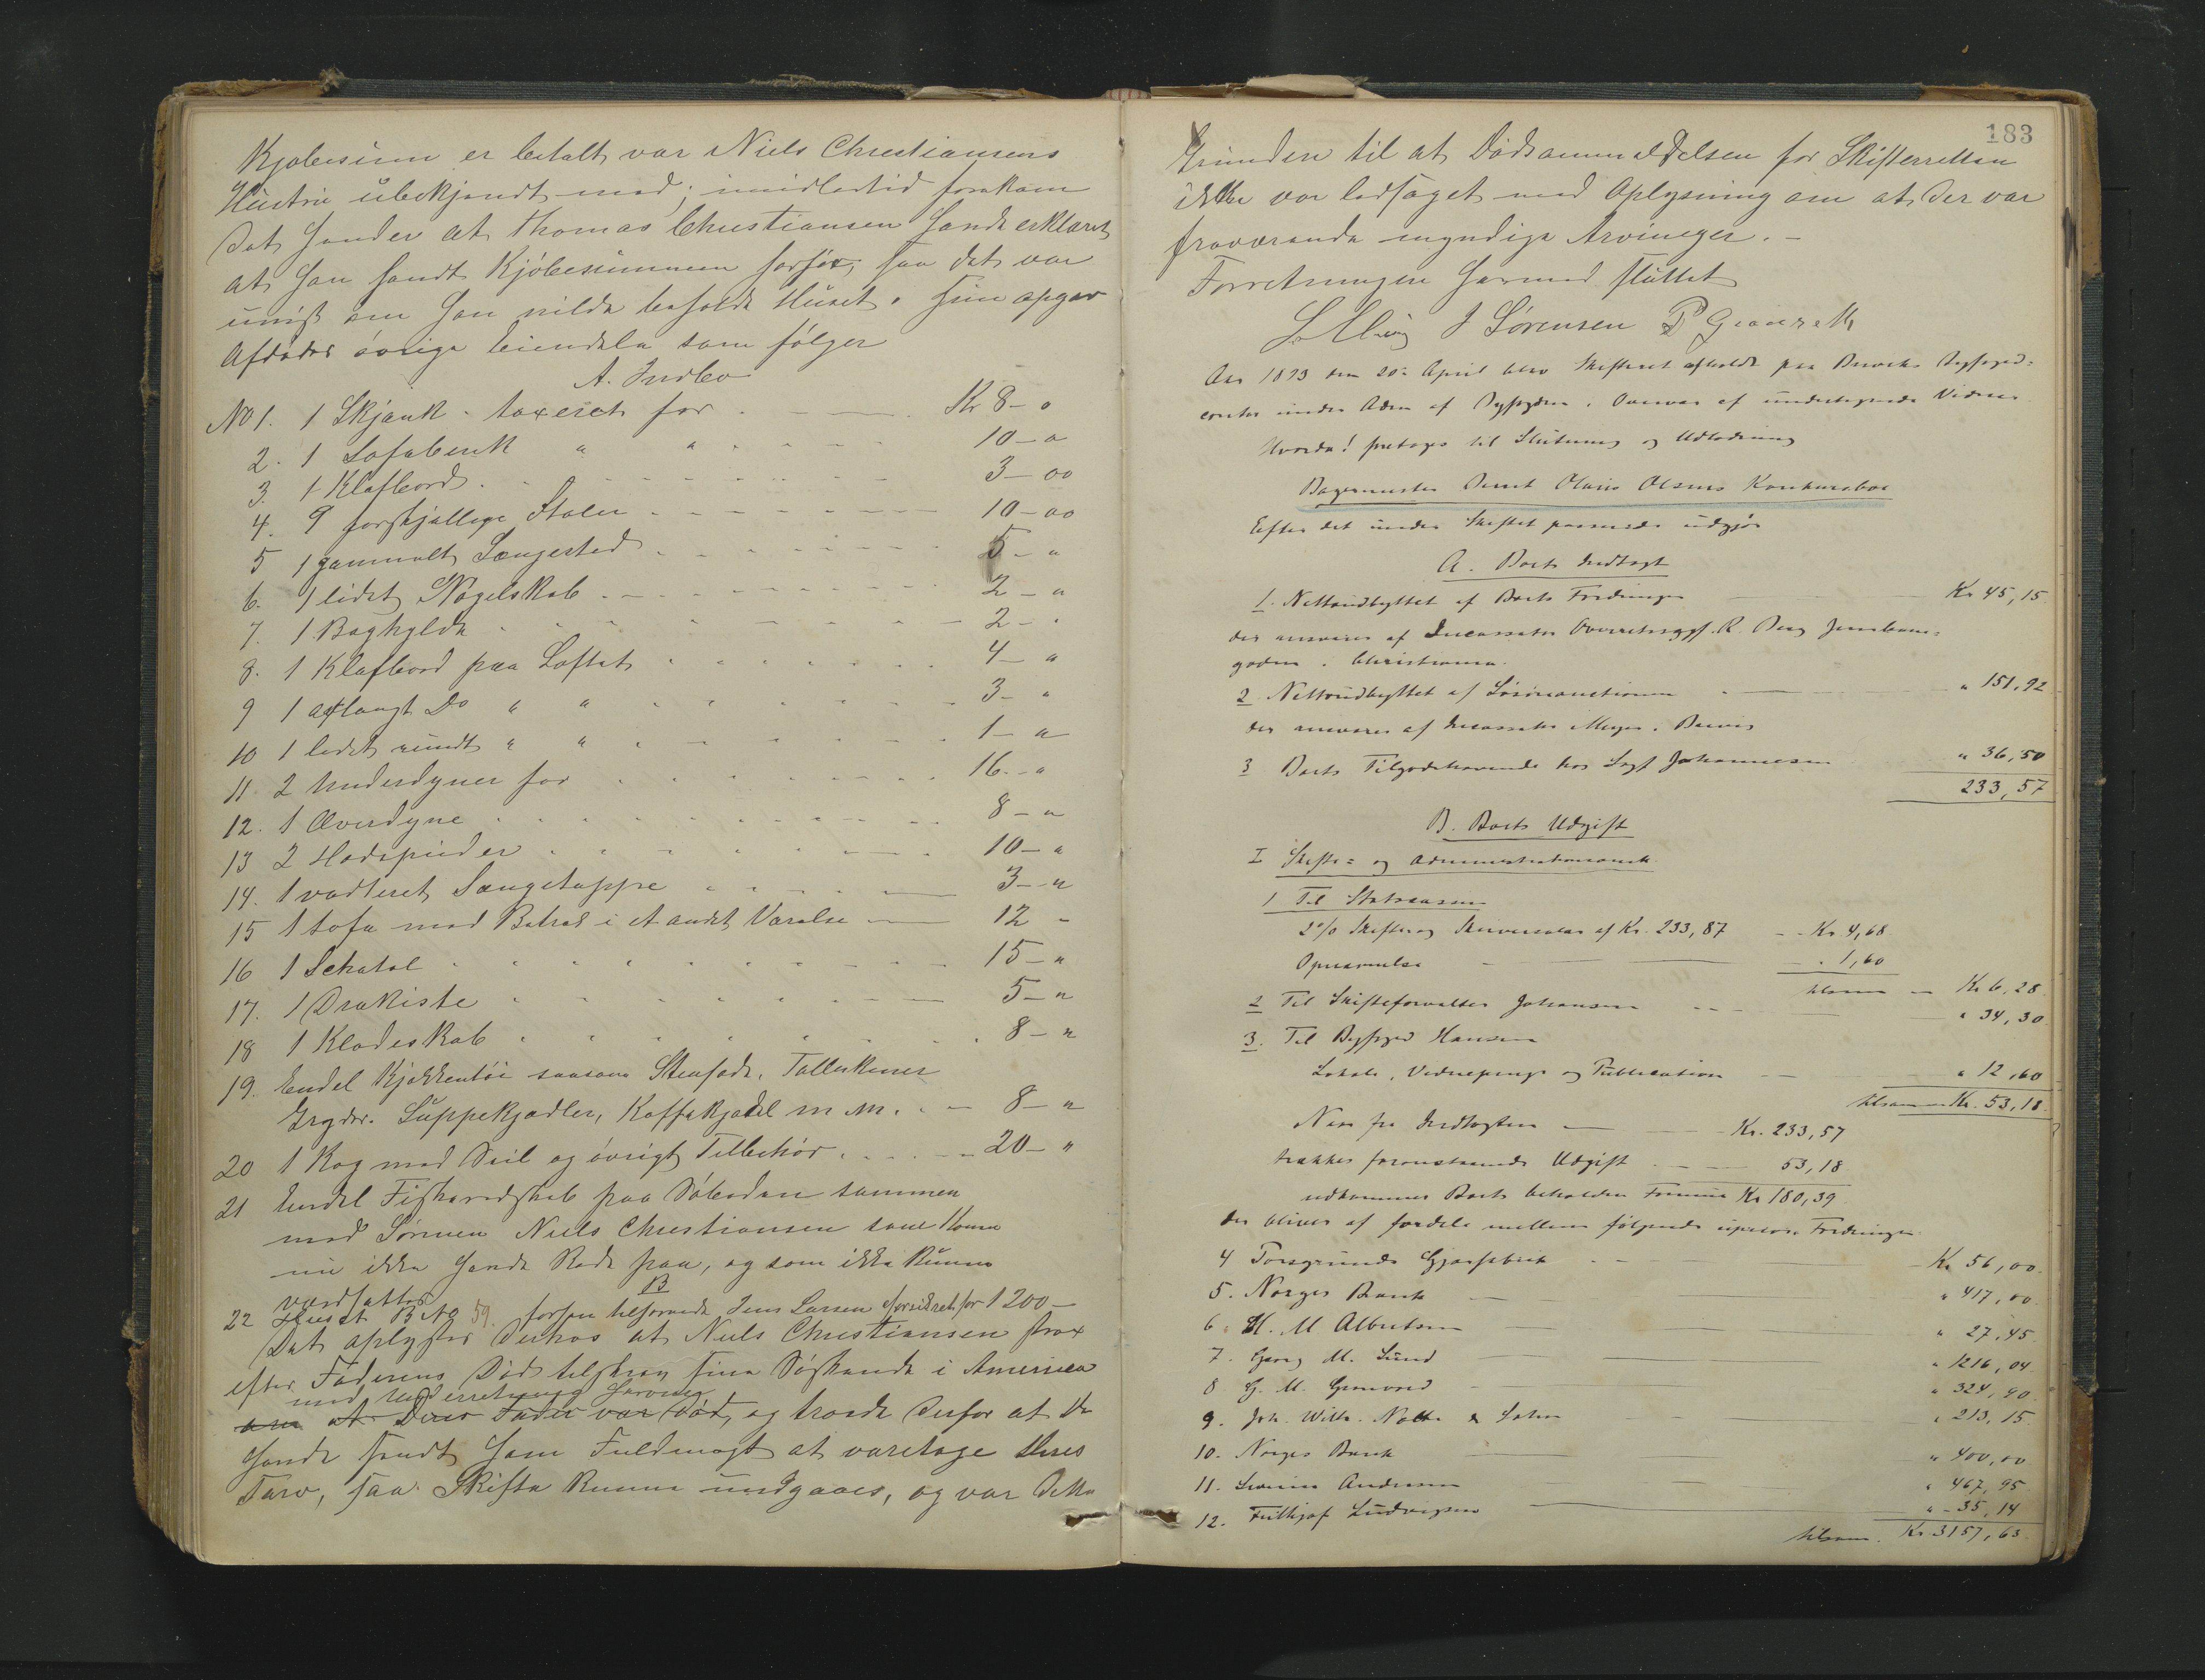 Kjøbesum er betalt var Niels Christiansens
Hustru ubekjendt med; imidlertid forekom
det hende at Thomas Christiansen havde erklæret
at han sendt Kjøbesummen forför, saa det var
uvist om han vilde beholde Huset. Hun opgav
Afdødes øvrige Eiendele som følger
A. Indbo
No 1. 1 Skjænk taxeret for Kr 8 - "
2. 1 Sofabenk " " 10 - "
3. 1 Klafbord 3 - 00
4. 9 forskjællige Stoler 10 - 00
5 1 gammalt Sengested 5 - "
6. 1 lidet Nøgelskab 2 - "
7. 1 Baghylde 2 - "
8. 1 Klafbord paa Loftet 4 - "
9 1 aflangt Do " " 3 - "
10 1 lidet rundt " " 1 - "
11. 2 Underdyner for 16 - "
12. 1 Overdyne 8 - "
13 2 Hodepuder 10 - "
14. 1 vatteret Sengetæppe 3 - "
15 1 Sofa med Betræk i et andet Værelse 12 -
16 1 Schatol 15 - "
17. 1 Dragkiste 5 - "
18 1 Klædeskab 8 - "
19. Endel Kjøkkentøi saasom Stenfade, Tallerkener
Gryder. Suppekjedler, Kaffekjedel m. m. 8 - "
20 1 Kog med Seil og øvrigt Tilbehør 20 - "
21 Endel Fiskeredskab paa Søboden sammen
med Sønnen Niels Christiansen som Konen
nu ikke havde Rede paa, og som ikke kunne
værdsættes
B
22 Huset B No 59. forhen tilhørende Jens Larsen forsikret for 1200 -
Det oplystes derhos at Niels Christiansen strax
efter Faderens Død tilskrev sine Søskende i America
med Underretning herom
om at Deres Fader var død, og troede derfor at de
havde sendt ham Fuldmagt at varetage deres
Tarv, saa Skifte kunne undgaaes, og var dette
183
Grunden til at Dødsanmeldelsen for Skifteretten
ikke var ledsaget med Oplysning om at der var
fraværende myndige Arvinger. -
Forretningen hermed sluttet
J Sørensen P
Aar 1893 den 20de April blev Skifteret afholdt paa Brevik Byfoged-
contor under Adm af Byfogden i Overvær af undertegnede Vidner
Hvorda! foretoges til Slutning og Udlodning
Bagermester Bernt Olaus Olsens Konkursbo
Efter det under Skiftet passerede udgjør
A. Boets Indtægt
1. Nettoudbyttet af Boets Fordringer Kr 45,15
der ansvares af Incassator Overretssagf. R. Berg Jernbane-
gaden i Christiania.
2. Nettoudbyttet af Løsøreauctionen " 151,92
der ansvares af Incassator Meyer i Brevig
3 Boets Tilgodehavende hos Sagf Johannesen " 36,50
233,57
B. Boets Udgift
I Skifte- og Administrationsomk.
1 Til Statscassen
2% Skifte og Skriversalær af Kr. 233,87 - Kr 4,68
Opnævnelse " 1,60
tilsammen - Kr 6,28
2 Til Skifteforvalter Johansen " 34,30
3. Til Byfoged Hansen
Lokale, Vidnepenge og Publication " 12,60
tilsammen Kr. 53,18
Naar fra Indtægten Kr. 233,57
trækkes foranstaaende Udgift 53,18
udkommer Boets beholdne Formue Kr 180,39
der bliver at fordele mellem følgende uprior. Fordringer
4 Porsgrunds Kr 56,00
5. Norges Bank " 417,00
6. H. M Albertsen " 27,45
7. Georg M. Lund " 1216,04
8 G. M. " 324,90
9. Joh. Wilh. & Sohn " 213,15
10. Norges Bank " 400,00
11. Andersen " 467,95
12. Frithjof Ludvigsen " - 35,14
tilsam. Kr. 3157,63